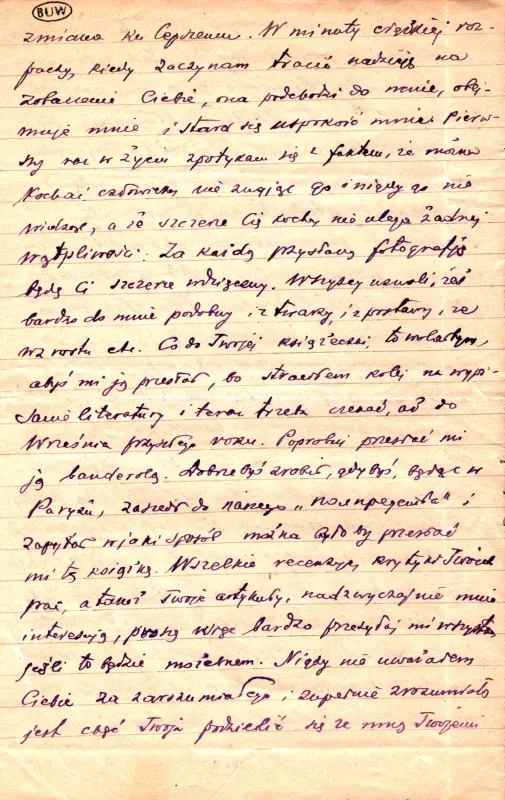 BUW
zmiana ku lepszemu. W minuty ciężkiej roz-
paczy, kiedy zaczynam tracić nadzieję na
zobaczenie Ciebie, ona podchodzi do mnie, obej-
muje mnie i stara się uspokoić mnie. Pierw-
szy raz w życiu spotykam się z faktem, że można
kochać człowieka, nie znając go i nigdy go nie
widząc, a że szczerze Cię kocha nie ulega żadnej
wątpliwości. Za każdą przysłaną fotografję
będę Ci szczerze wdzięczny. Wszyscy uznali, żeś
bardzo do mnie podobny i z twarzy, i z postawy, i ze
wzrostu etc. Co do Twojej książeczki, to wolałbym,
abyś mi ją przesłał, bo straciłem kolej na wypi-
sanie literatury i teraz trzeba czekać, aż do
Września przyszłego roku. Poprobuj przesłać mi
ją banderolą. Dobrze byś zrobił, gdybyś, będąc w
Paryżu, zaszedł do naszego „полпредства" i
zapytał w jaki sposób można było by przesłać
mi tę książkę. Wszelkie recenzje, krytyki Twoich
prac, a także Twoje artykuły, nadzwyczajnie mnie
interesują, proszę więc bardzo przesyłaj mi wszystko,
jeśli to będzie możebnem. Nigdy nie uważałem
Ciebie za zarozumiałego i zupełnie zrozumiałą
jest chęć Twoja podzielić się ze mną Twojemi